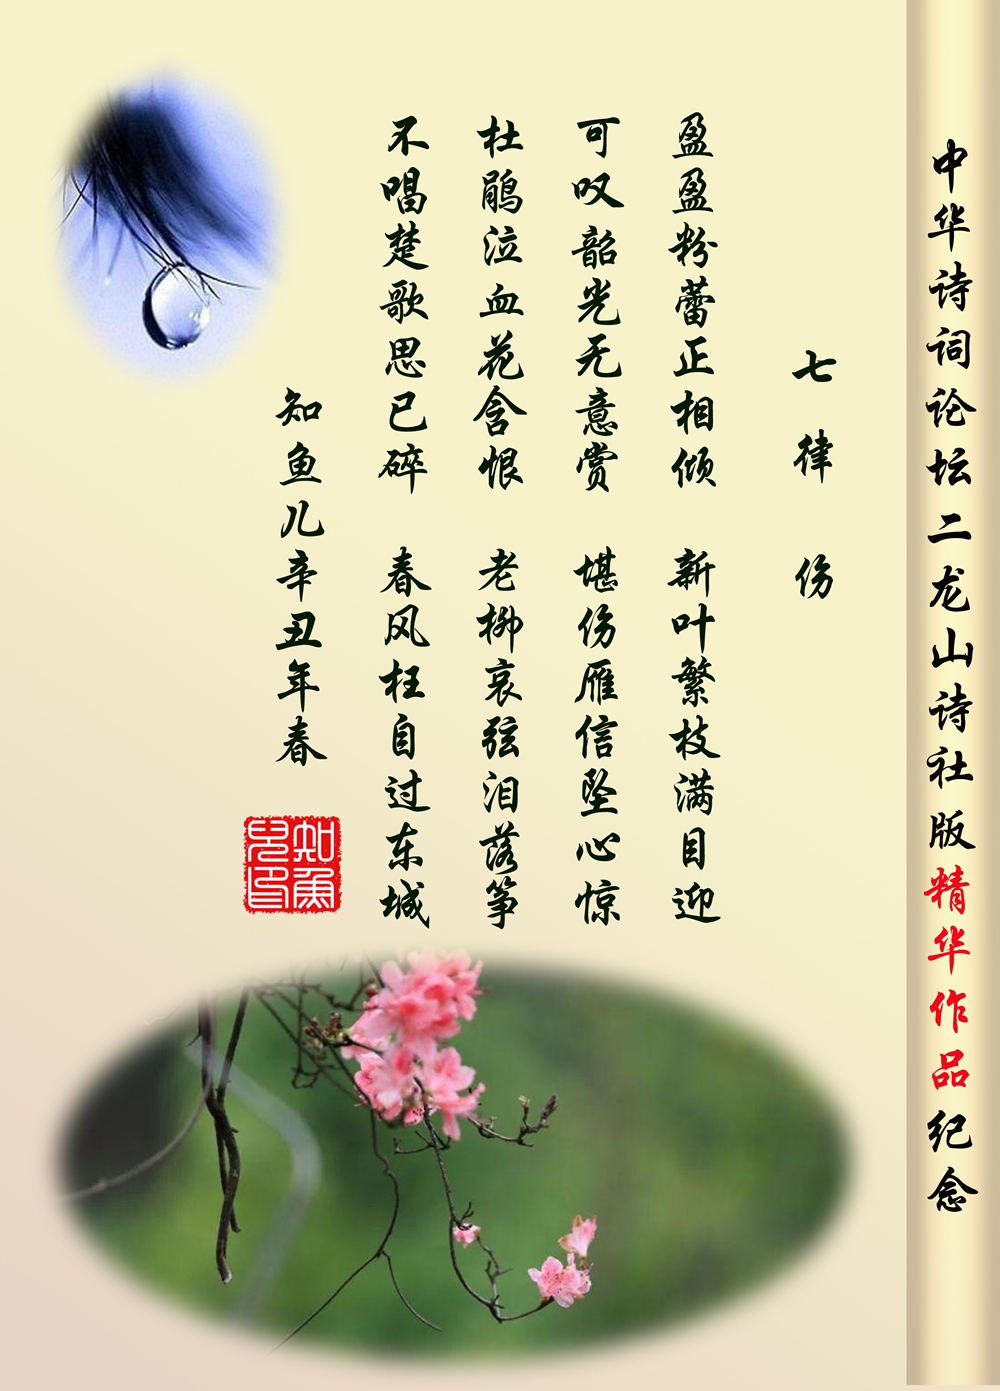 中华诗词论坛二龙山诗社版精华作品纪念
七律 伤
盈盈粉蕾正相倾 新叶繁枝满目迎
可叹韶光无意赏 堪伤雁信坠心惊
杜鹃泣血花含恨 老柳哀弦泪落筝
不唱楚歌思已碎 春风枉自过东城
知鱼儿辛丑年春
知鱼
兒印